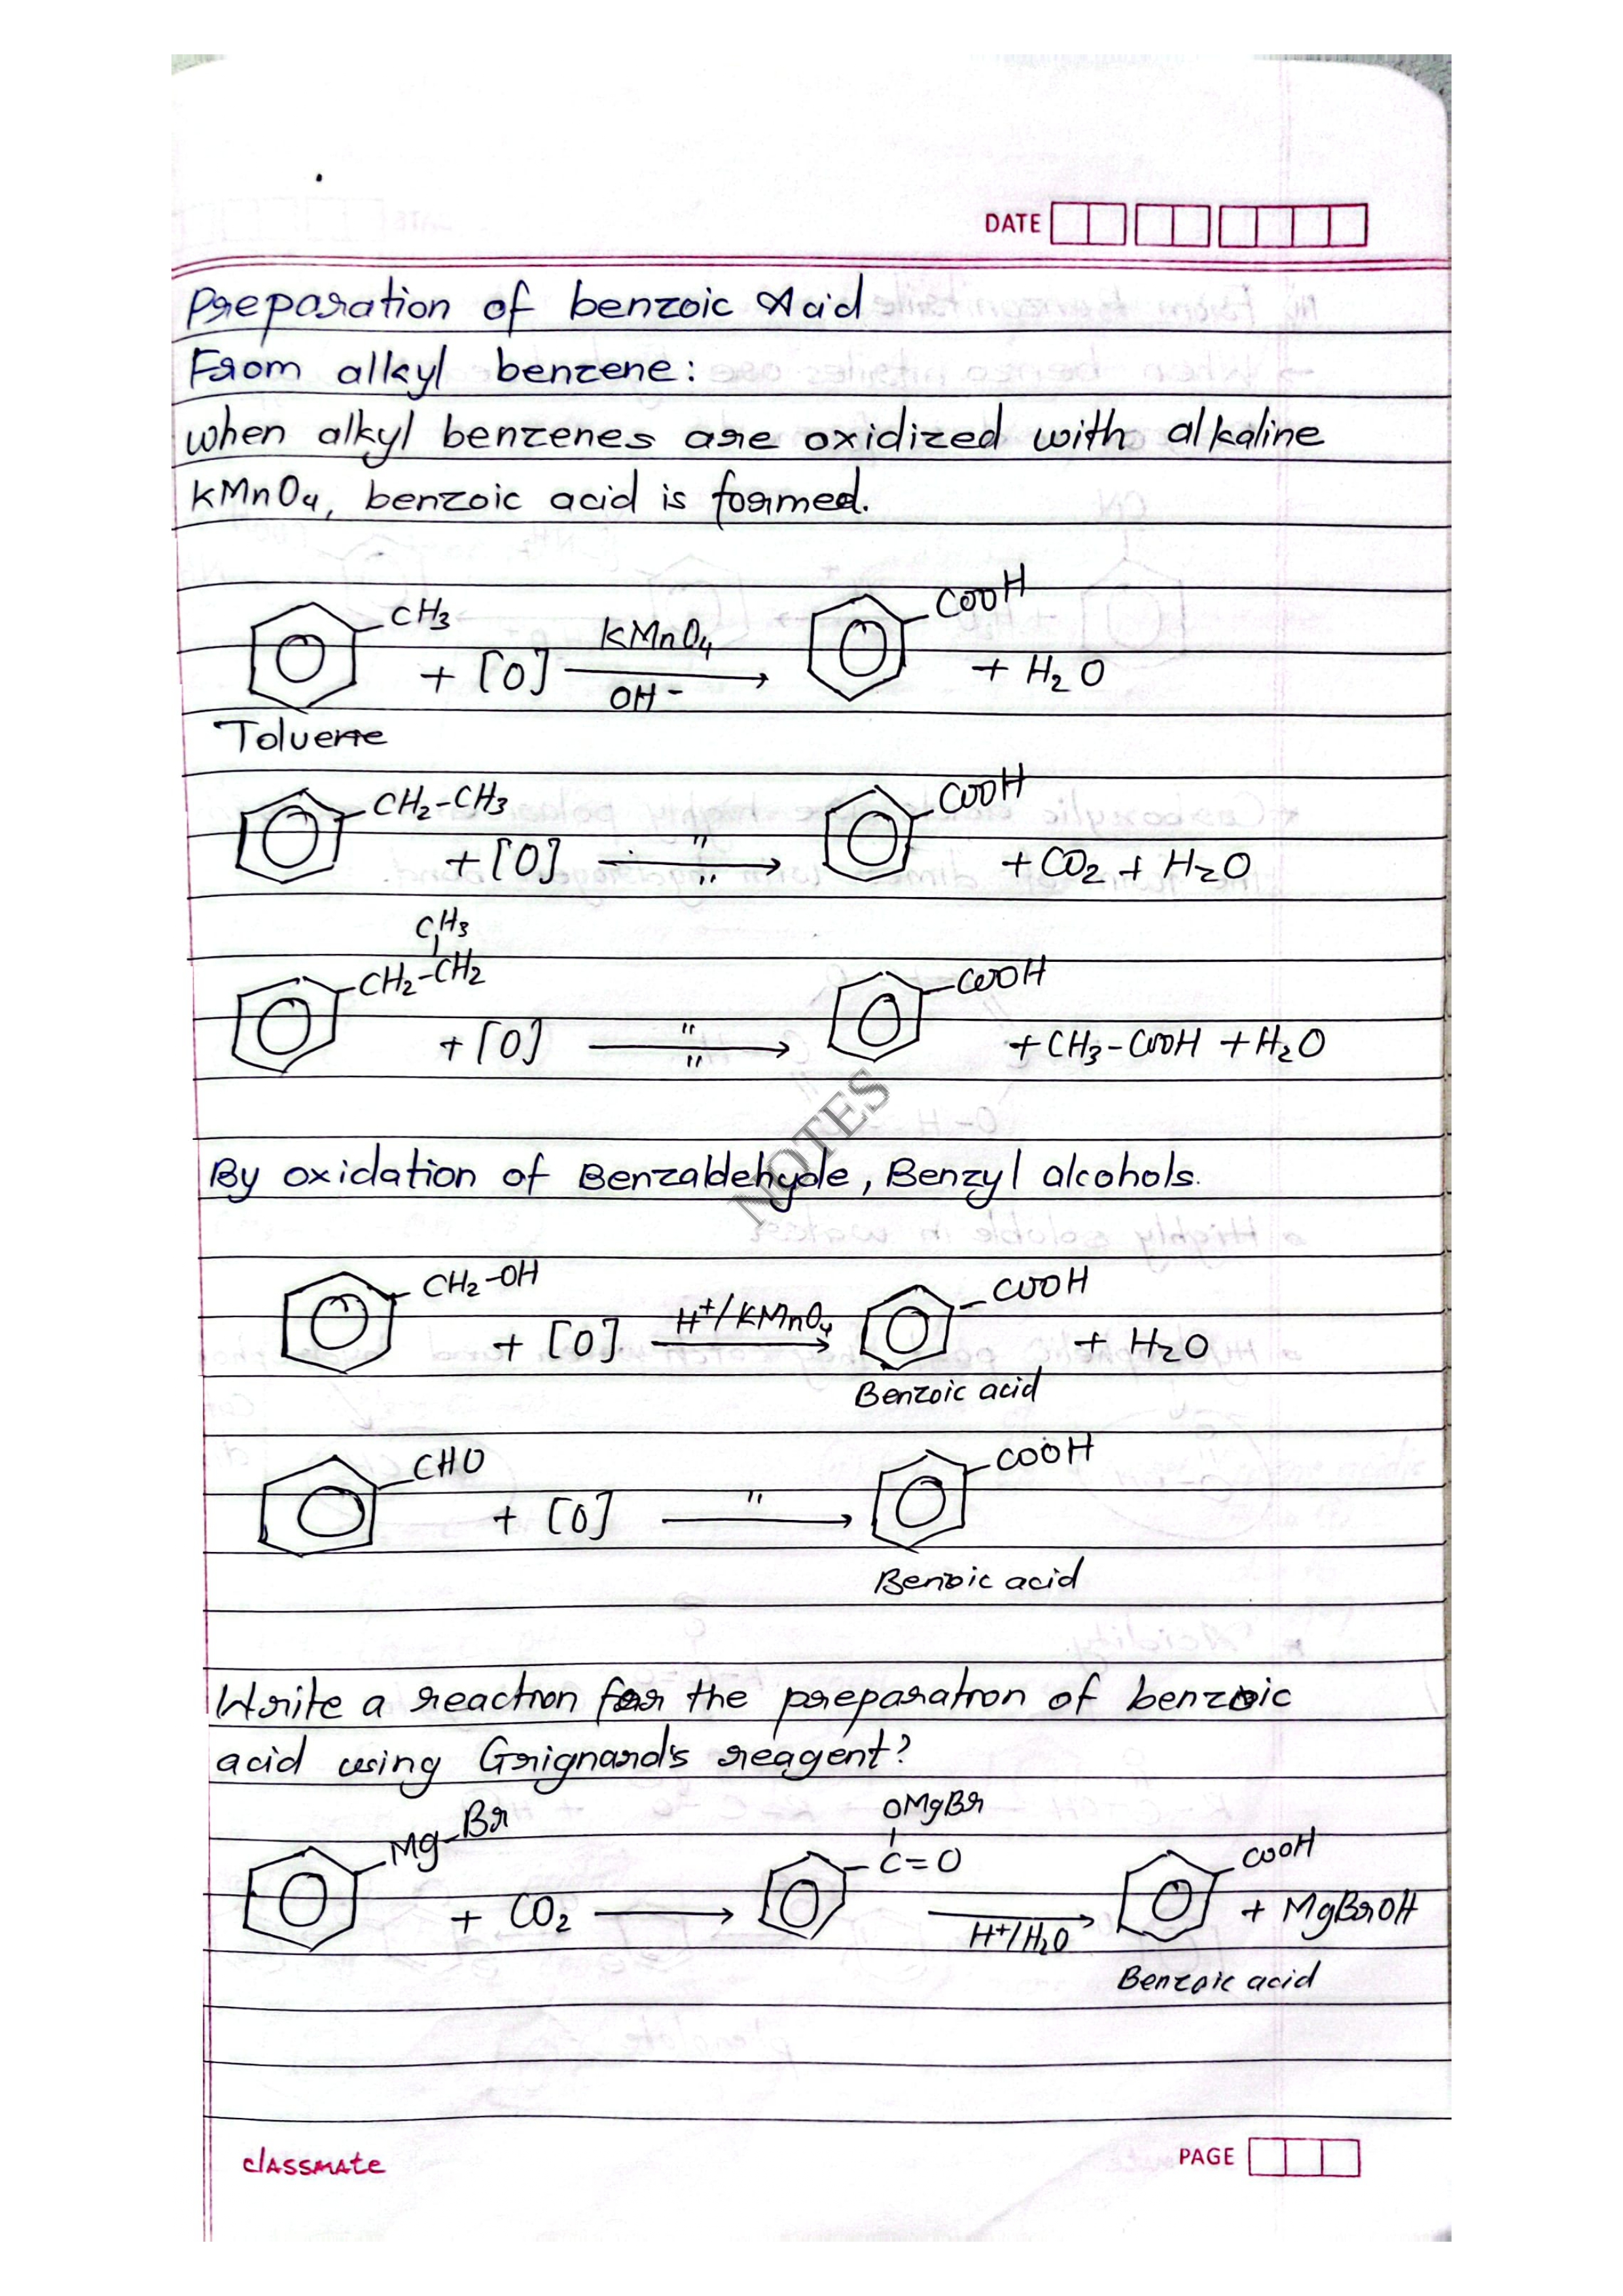 DATE
Preparation of benzoic Acid
From alkyl benzene:
when alkyl benzenes are oxidized with alkaline
KMnO4, benzoic acid is formed.
CH3 + [O] KMnO4 OH- COOH + H2O
Toluene
CH2-CH3 + [O] " " COOH + CO2 + H2O
CH3
CH2-CH2 + [O] " " COOH + CH3-COOH + H2O
NOTES
By oxidation of Benzaldehyde, Benzyl alcohols.
CH2-OH + [O] H+/KMnO4 COOH + H2O
Benzoic acid
CHO + [O] " COOH
Benzoic acid
Write a reaction for the preparation of benzoic
acid using Grignard's reagent?
OMgBr
Mg-Br + CO2 C=O H+/H2O COOH + MgBrOH
Benzoic acid
classmate
PAGE